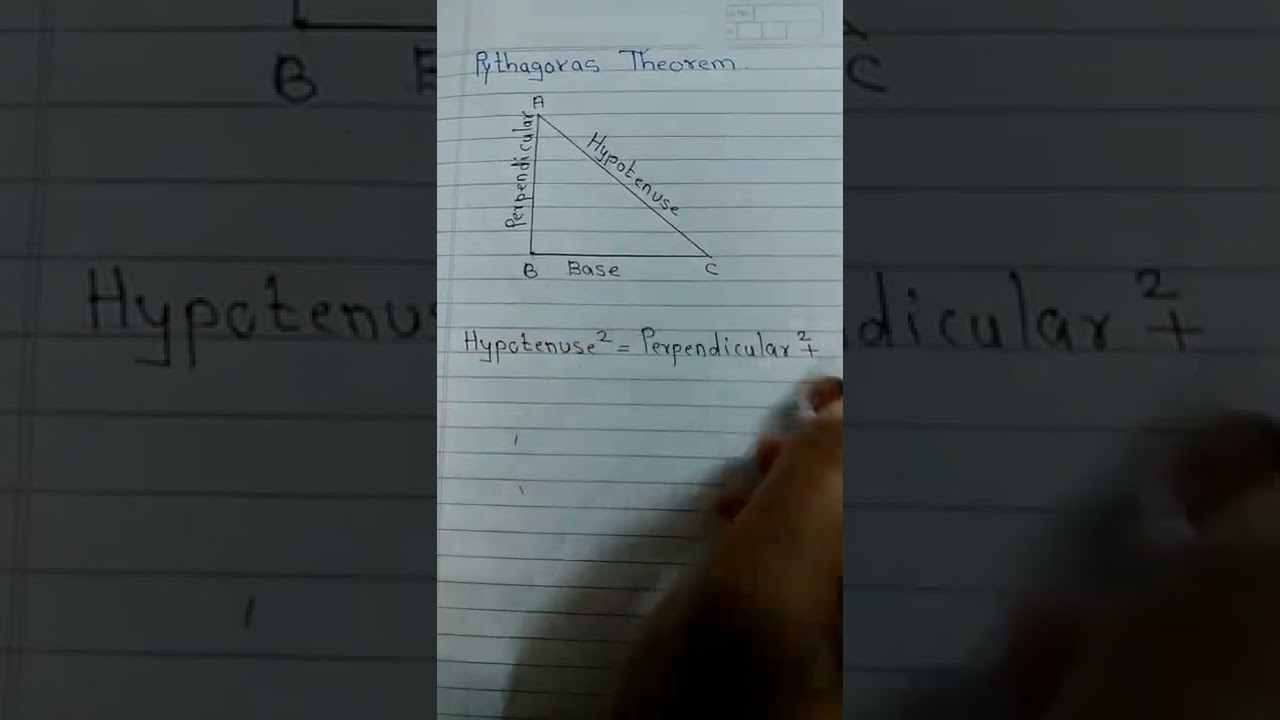 Pythagoras Theorem.
A
Perpendicular
Hypotenuse
B Base C
Hypotenuse² = Perpendicular² +